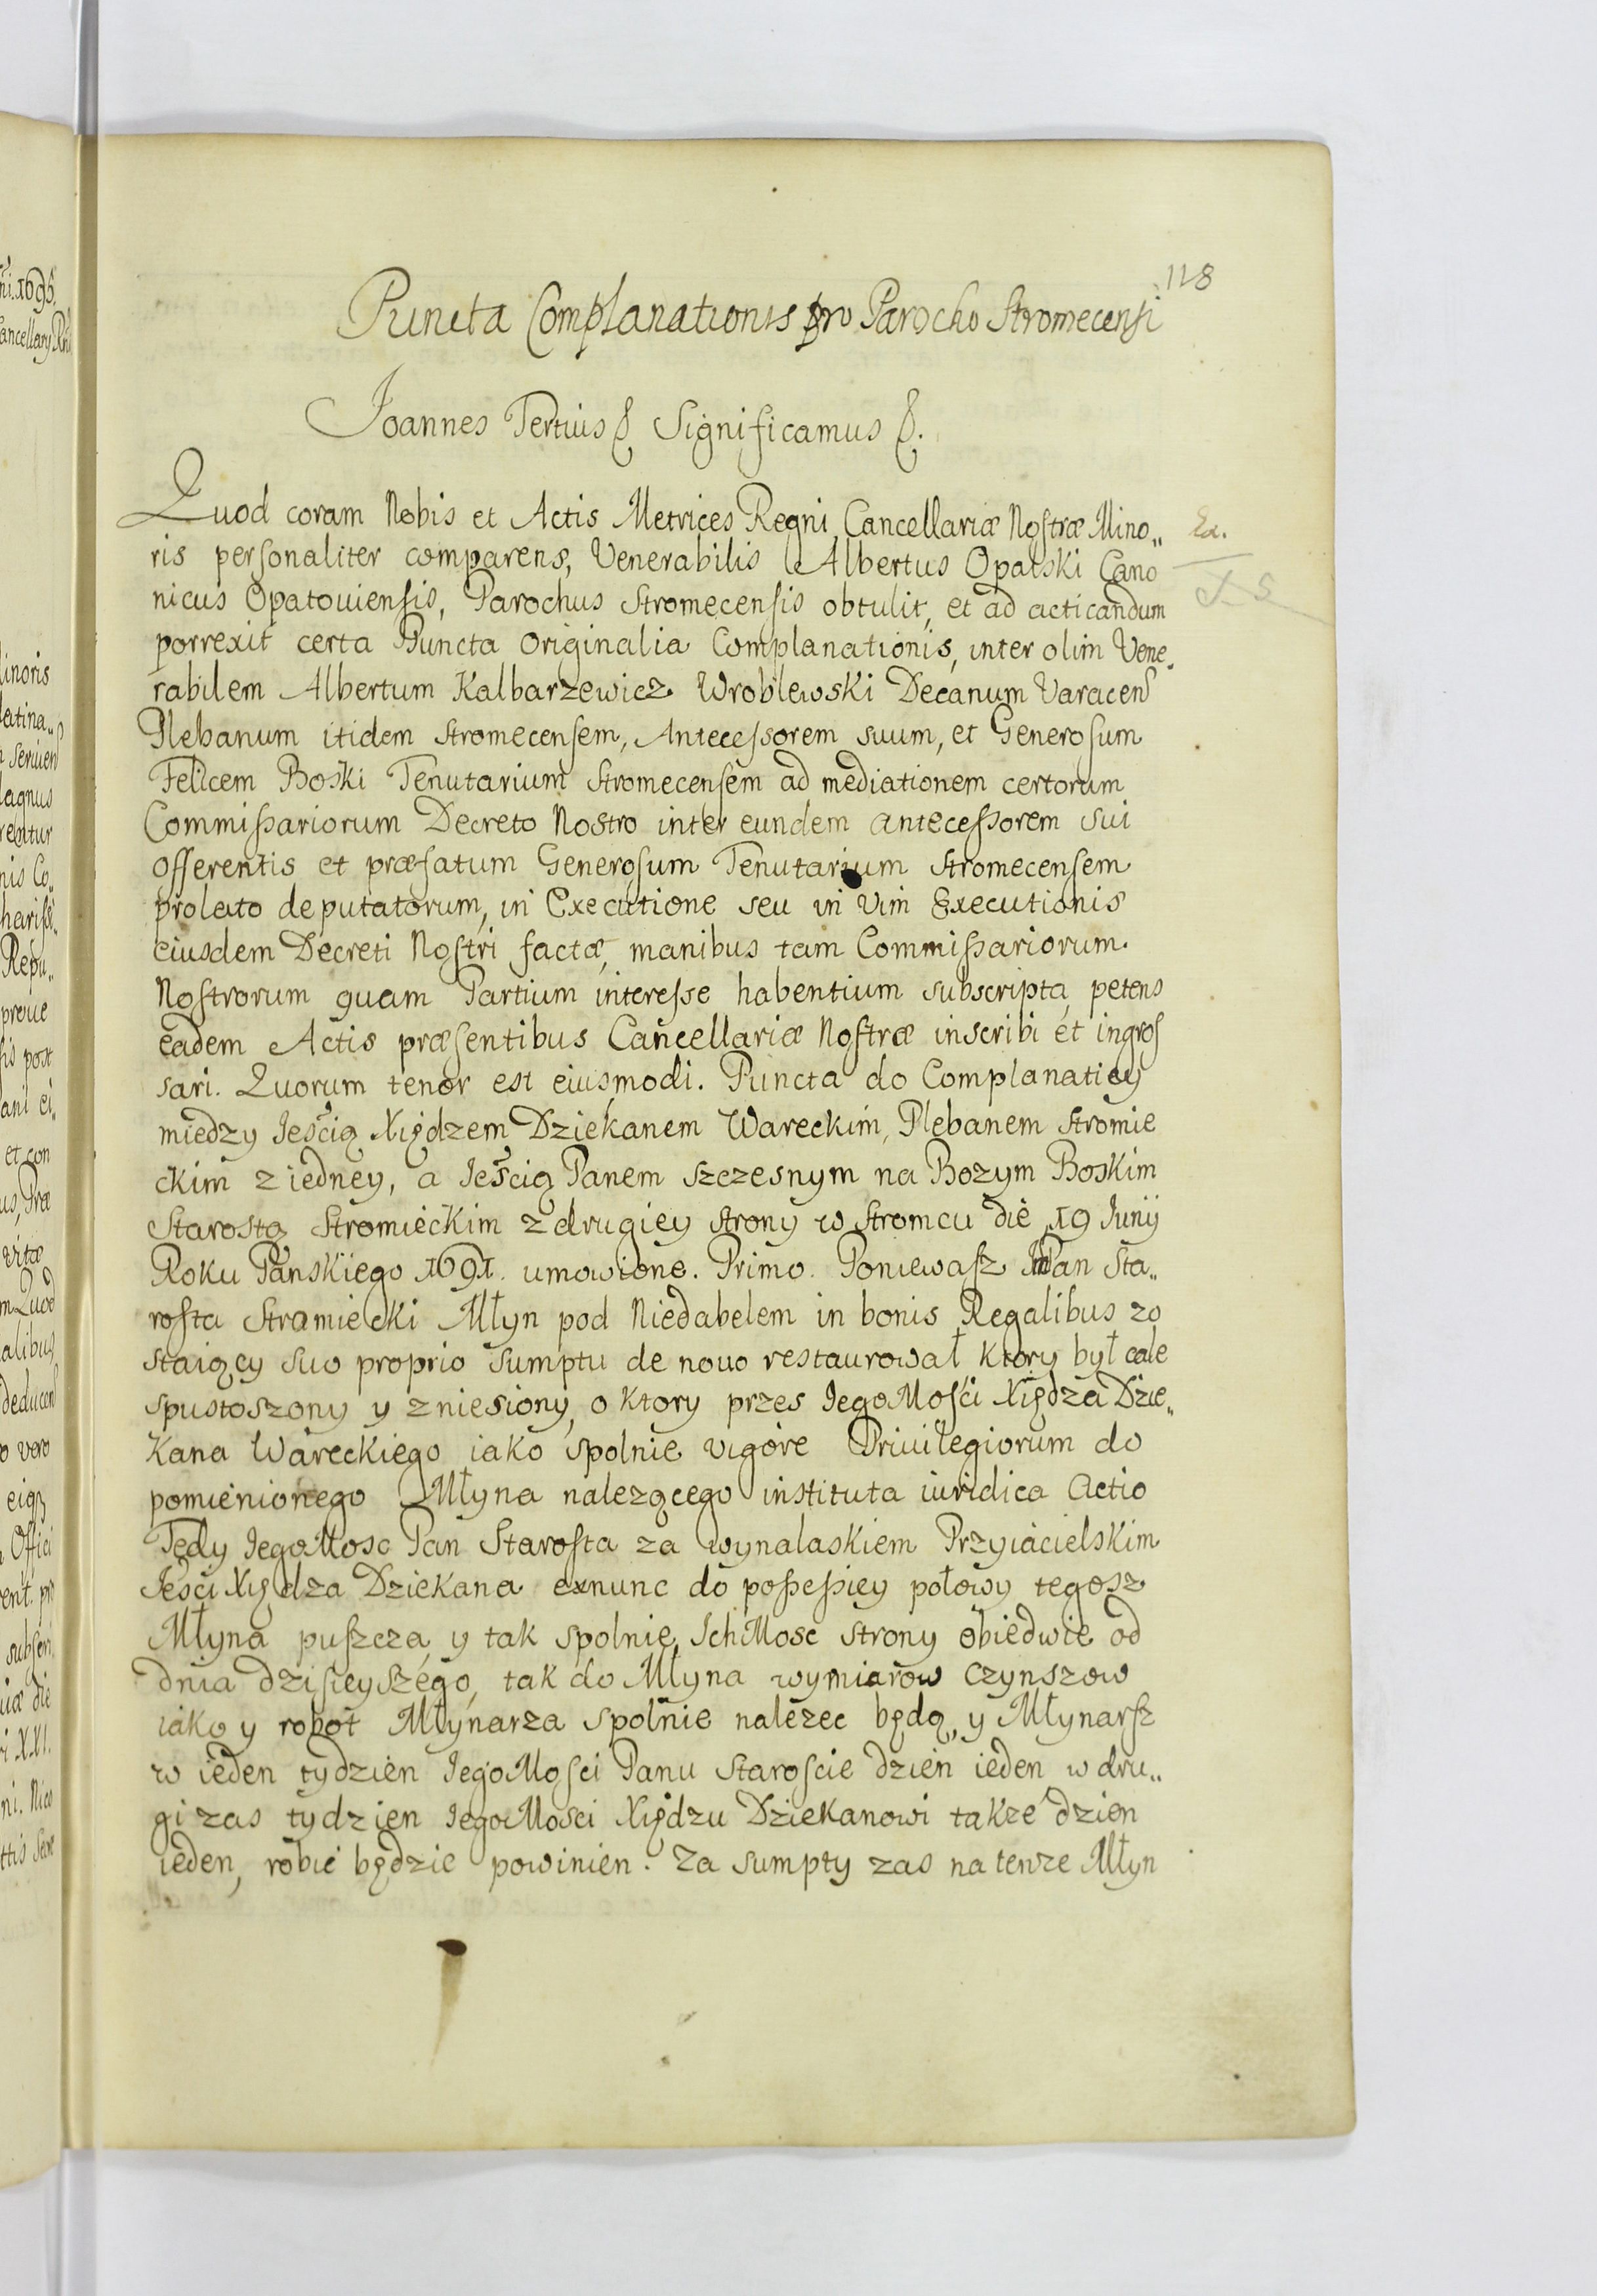 118
Puncta Complanationis pro Parocho Stromecensi
Joannes Tertius & Significamus &.
Quod coram Nobis et Actis Metrices Regni Cancellariæ Nostræ Mino„
ris personaliter comparens, Venerabilis Albertus Opatski Cano
nicus Opatouiensis, Parochus Stromecensis obtulit, et ad acticandum
porrexit certa Puncta Originalia Complanationis, inter olim Vene„
rabilem Albertum Kalbarzewicz Wroblewski Decanum Varacens
Plebanum itidem Stromecensem, Antecessorem suum, et Generosum
Felicem Boski Tenutarium Stromecensem ad mediationem certorum
Commissariorum Decreto Nostro inter eundem antecessorem sui
offerentis et præfatum Generosum Tenutarium Stromecensem
prolato deputatorum, in Executione seu in vim Executionis
eiusdem Decreti Nostri factæ, manibus tam Commissariorum
Nostrorum quam Partium interesse habentium subscripta, petens
eadem Actis præsentibus Cancellariæ Nostræ inscribi et ingros
sari. Quorum tenor est eiusmodi. Puncta do Complanatiey
miedzy Jeścią Xiędzem Dziekanem Wareckim, Plebanem Stromie
ckim z iedney, a Jeścią Panem Szczesnym na Bozym Boskim
Starostą Stromieckim z drugiey strony w Stromcu die 19 Junij
Roku Panskiego 1691. umowione. Primo. Poniewasz Pan Sta„
rosta Stramiecki Młyn pod Niedabelem in bonis Regalibus zo
staiący suo proprio sumptu de nouo restaurował ktory był cale
spustoszony y zniesiony, o ktory przes JegoMości Xiędza Dzie„
kana Wareckiego iako spolnie vigore Priuilegiorum do
pomienionego Młyna nalezącego instituta iuridica Actio
Tędy JegoMosc Pan Starosta za wynalaskiem Przyiacielskim
Jeści Xiędza Dziekana exnunc do possessiey połowy tegosz
Młyna puszcza, y tak spolnie IchMosc strony obiedwie od
dnia dzisieyszego, tak do Młyna wymiarow czynszow
iako y robot Młynarza spolnie nalezec będą, y Młynarsz
w ieden tydzien JegoMosci Panu Staroscie dzien ieden w dru„
gi zas tydzien JegoMosci Xiędzu Dziekanowi takze dzien
ieden, robic będzie powinien. Za sumpty zas na tenze Młyn